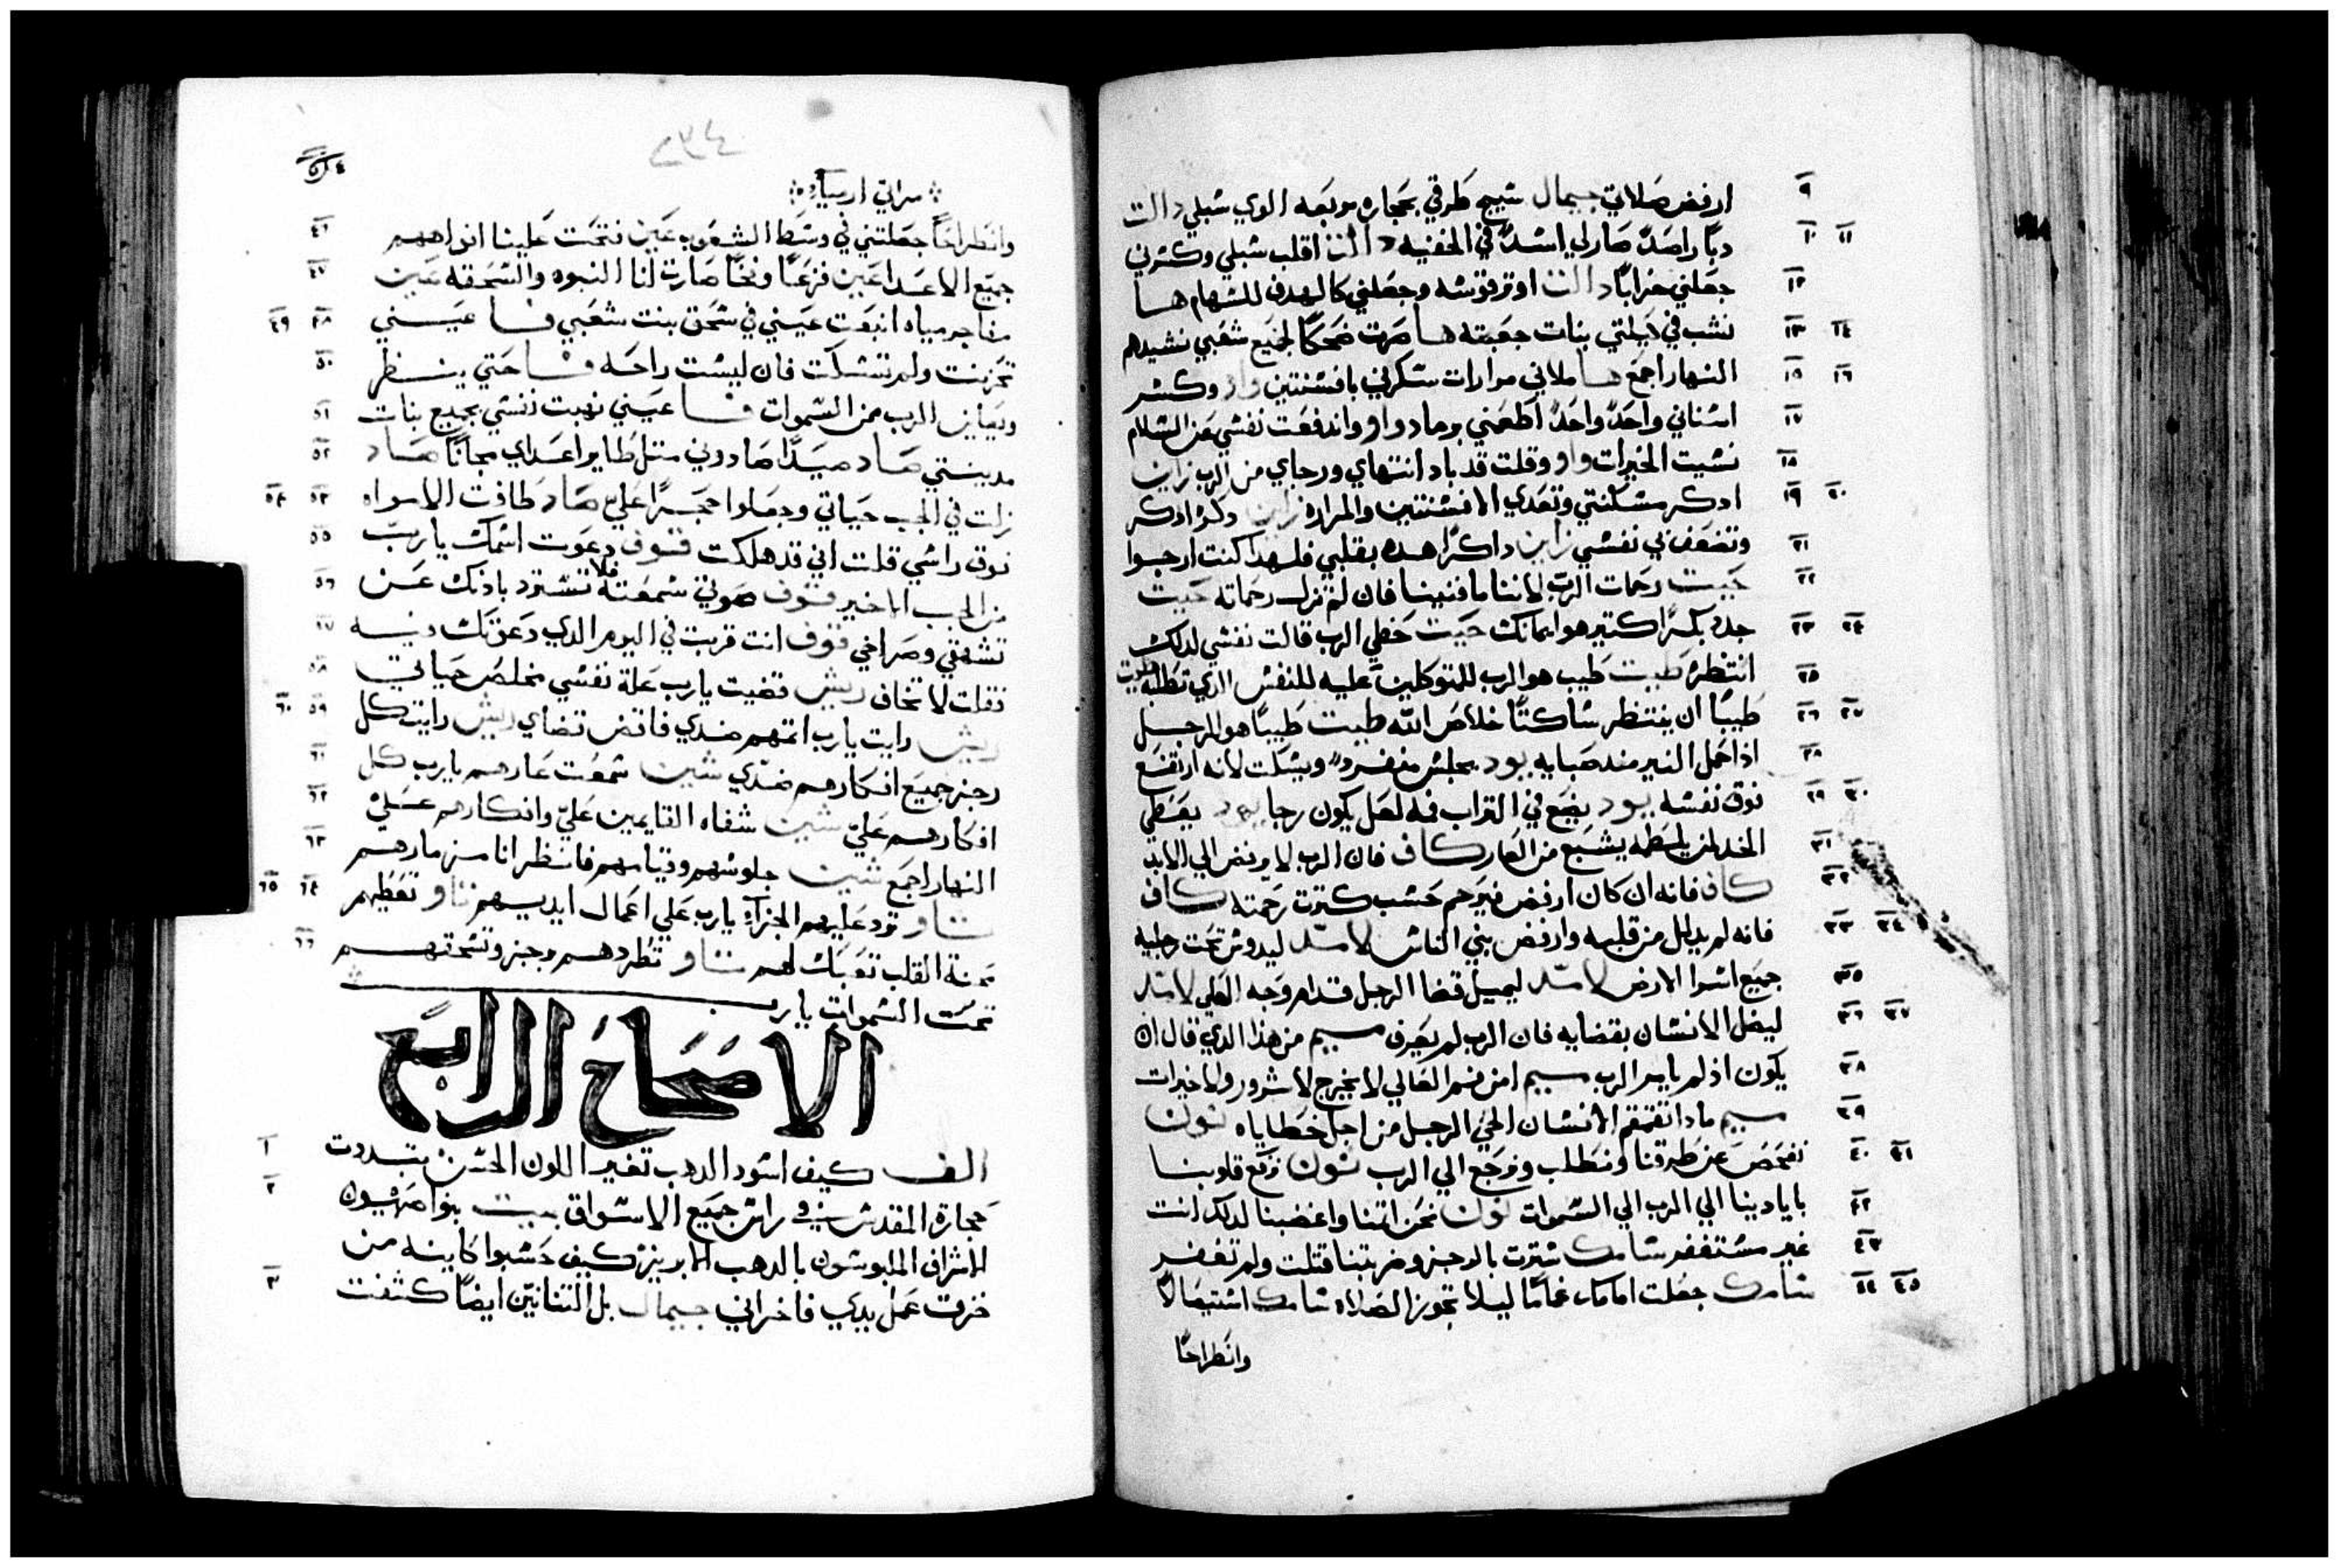 ارفض صلاتي جيمال شيج طرقي بحجاره مربعه الوي سبلي دالت
دبًا راصدً صار لي اسدً في الخفيه دالت اقلب سبلي وكسرني
جعلني خرابًا دالت اوتر قوسه وجعلني كالهدف للسهام ها
نشب في كليتي بنات جعبته ها صرت ضحكًا لجميع شعبي نشيدهم
النهار اجمع ها ملاني مرارات سكرني بافسنتين واو وكسر
اسناني واحدً واحدً اطعمني رمادً واو واندفعت نفسي عن السلام
نسيت الخيرات واو وقلت قد باد انتهاي ورجاي من الرب زاين
ادكر مسكنتي وتعدي الافسنتين والمراره زاين دكرً ادكر
وتضعف بي نفسي زاين داكرًا هده بقلبي فلهدا كنت ارجوا
حيت رحمات الرب لاننا ما فنينا فان لم تزل رحماته حيت
جدد بكرًا كتير هو ايمانك حيت حظي الرب قالت نفسي لدلك
انتظرهُ طيت طيب هو الرب للمتوكلين عليه للنفس الدي تطلبه طيت
طيبًا ان ينتظر ساكتًا خلاص الله طيت طيبًا هو للرجل
ادا حمل النير مند صبايه يود يجلس منفردً ويسكت لانه ارتفع
فوق نفسه يود يضع في التراب فمه لعل يكون رجا يود يعطي
الخد لمن يلطمه يشبع من العار كاف فان الرب لا يرفض الي الابد
كاف فانه ان كان ارفض فيرحم حسب كترت رحمته كاف
فانه لم يدلل من قلبه وارفض بني الناس لامد ليدوس تحت رجليه
جميع اسرا الارض لامد ليميل قضا الرجل قدام وجه العلي لامد
ليضل الانسان بقضايه فان الرب لم يعرف ميم من هذا الدي قال ان
يكون اذ لم يامر الرب ميم امن فم العالي لا يخرج لا شرور ولا خيرات
ميم مادا تقمقم الانسان الحي الرجل من اجل خطاياه نون
نفحص عن طرقنا ونطلب ونرجع الي الرب نون نرفع قلوبنا
بايادينا الي الرب الي السموات نون نحن اتمنا واغضبنا لدلك انت
غير مستغفر سامك سترت بالرجز وضربتنا قتلت ولم تغفر
سامك جعلت امامك غمامًا ليلا تجوز الصلاه سامك استيصالاً
وانطراحًا
مراتي ارميا
وانطراحًا جعلتني في وسط الشعوب عين فتحت علينا افواههم
جميع الاعدا عين فزعًا وفخًا صارت لنا النبوه والسحقه عين
مفاجر مياه انبعت عيني في سحق بنت شعبي فا عيني
تحزنت ولم تسكت فان ليست راحه فا حتي ينظر
ويعاين الرب من السموات فا عيني نهبت نفسي بجميع بنات
مدينتي صاد صيدًا صادوني متل طاير اعداي مجانًا صاد
زلت في الجب حياتي وجعلوا حجرًا عليّ صاد طافت الامواه
فوق راسي قلت اني قد هلكت قوف دعوت اسمك يا ربّ
من الجب الاخير قوف صوتي سمعته فلا تسترد بادنك عن
تشهقي وصراخي قوف انت قربت في اليوم الدي دعوتك فيه
فقلت لا تخاف ريش قضيت يا رب علة نفسي مخلص حياتي
ريش رايت يا رب اتمهم ضدي فاقض قضاي ريش رايت كل
رجز جميع افكارهم ضدّي شين سمعت عارهم يا رب كل
افكارهم عليّ شين شفاه القايمين عليّ وافكارهم عليّ
النهار اجمع شين جلوسهم وقيامهم فانظر انا مزمارهم
تاو ترد عليهم الجزاء يا رب علي اعمال ايديهم تاو تعطيهم
محنة القلب تعبك لهم تاو تطردهم برجز وتسحقهم
تحت السموات يا رب
الاصحاح الرابع
الف كيف اسود الدهب تغير اللون الحسن بتددت
حجارة المقدس في راس جميع الاسواق بيت بنوا صهيون
الاشراف الملبوسون بالدهب الابريز كيف حسبوا كانيه من
خزف عمل يدي فاخراني جيمال بل التنانين ايضًا كشفت